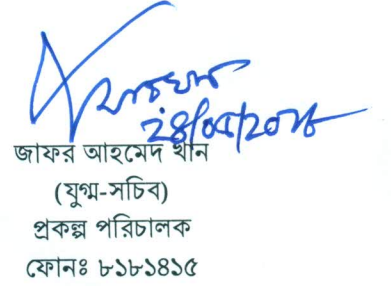 জাফর আহমেদ খান
(যুগ্ম-সচিব)
প্রকল্প পরিচালক
ফোনঃ ৮১৮১৪১৫